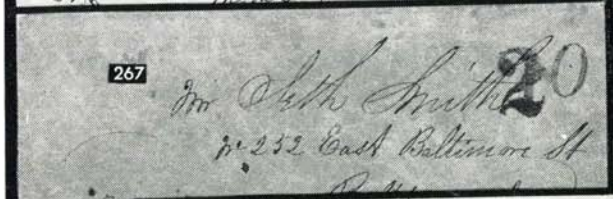 267
20
Mr Seth Smith
No 252 East Baltimore St